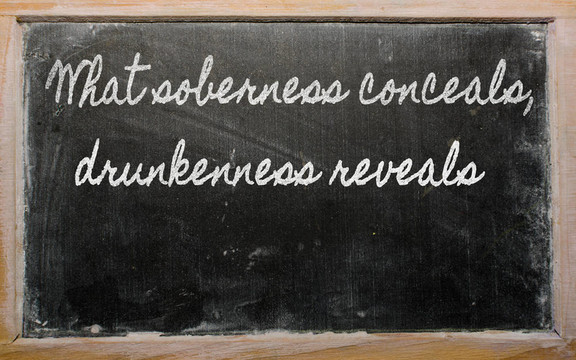 What soberness conceals,
drunkenness reveals